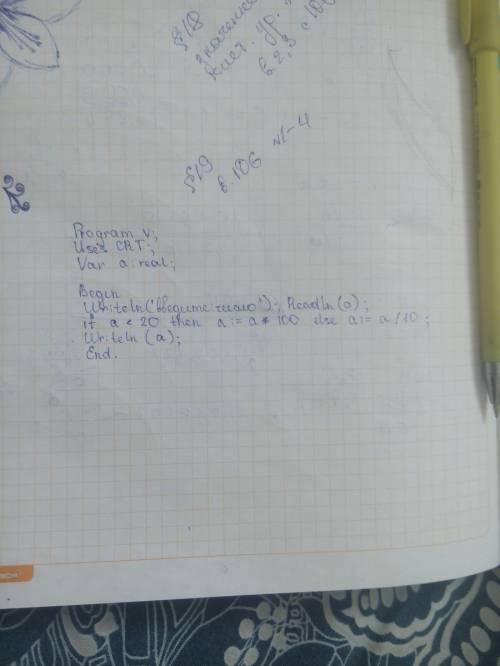 §18
значение
жсест. ур.
в. 2, 3 с 106
§19
в. 106 №1-4
Program v;
Uses CRT;
Var a: real;
Begin
Writeln('введите число'); Readln(a);
if a < 20 then a := a * 100 else a := a / 10;
Writeln (a);
End.